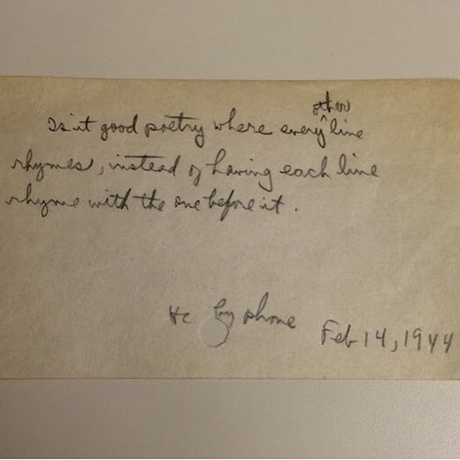 other
Is it good poetry where every ^ line
rhymes, instead of having each line
rhyme with the one before it.
by phone
Feb 14, 1944